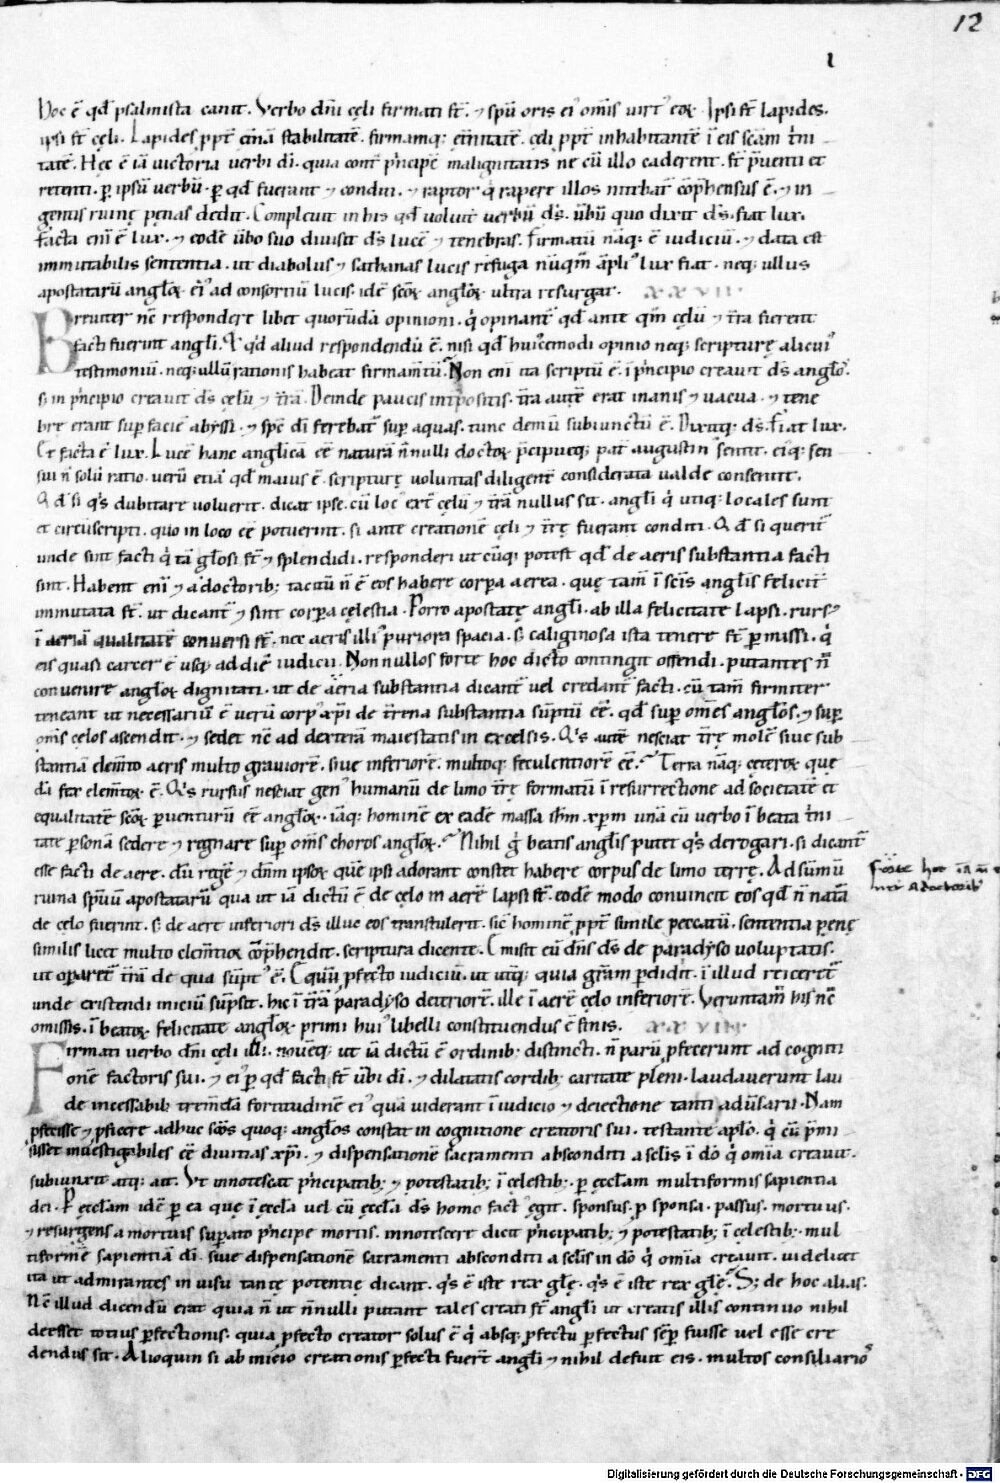 12
ı
Hoc ē qđ psalmista canit. Verbo dñi cęli firmati sť. ⁊ spū oris eiꝰ om̃is virtꝰ eoꝝ. Ipsi sť lapides.
ipsi sť cęli. Lapides ꝓpť etnā stabilitatē. firmamqꝫ etnitatē. cęli ꝓpť inhabitantē ī eis scām tͥni
tatē. Hęc ē iā victoria verbi dī. quia contͣ pͥncipē malignitatis ne cū illo caderent. sť p̄venti et
retenti. ꝑ ipsū verbū. ꝑ qđ fuerant ⁊ conditi. ⁊ raptor qͥ rapere illos nitebat̃ cōp̄hensus ē. ⁊ in
gentis ruinę pęnas dedit. Complevit in his qđ voluit verbū dꝰs. v̄bū quo dixit dꝰs. fiat lux.
facta eni ē lux. ⁊ eodē v̄bo suo divisit dꝰs lucē ⁊ tenebras. firmatū náqꝫ ē iudiciū. ⁊ data est
immutabilis sententia. ut diabolus ⁊ sathanas lucis refuga nūqͣm āpliꝰ lux fiat. neqꝫ ullus
apostatarū angloꝝ. eiꝰ ad consortiū lucis. idē scōꝝ angloꝝ ultra resurgat. xxvii.
Breviter nc̄ respondere libet quorūdā opinioni. qͥ opinant̃ qđ ante qͣm cęlū ⁊ tr̃ra fierent
facti fuerint angli. Et qͥd aliud respondendū ē. nisi qđ huiꝰcemodi opinio neqꝫ scripturę alicuiꝰ
testimoniū. neqꝫ ullū rationis habeat firmam̃tū. Non eni ita scriptū ē. ī pͥncipio creavit dꝰs anglos.
sꝫ in pͥncipio creavit dꝰs cęlū ⁊ tr̃rā. Deinde paucis int̃positis. tr̃ra autē erat inanis ⁊ vacua. ⁊ tene
brę erant suꝑ faciē abyssi. ⁊ spc̄ dī ferebat̃ suꝑ aquas. tunc demū subiunctū ē. Dixitqꝫ dꝰs. fiat lux.
Et facta ē lux. Lucē hanc anglicā eē naturā n̄nulli doctoꝝ p̄cipueqꝫ pat̃ augustinꝰ sentit. eiqꝫ sen
sui n̄ solū ratio. verū etiā qđ maius ē. scripturę voluntas diligent̃ considerata valde consentit.
Qđ si qͥs dubitare voluerit. dicat ipse. cū locꝰ extͣ cęlū ⁊ tr̃rā nullus sit. angli qͥ utiqꝫ locales sunt
et circūscripti. quo in loco eē potuerint. si ante creationē cęli ⁊ tr̃rę fuerant conditi. Qđ si querit̃
unde sint facti qͥ tā glosi sť ⁊ splendidi. responderi ut cūqꝫ potest qđ de aeris substantia facti
sint. Habent eni ⁊ a doctoribꝫ tacitū n̄ ē eos habere corꝑa aerea. quę tam̄ ī scīs anglis feliciť
immutata sť. ut dicant̃ ⁊ sint corꝑa cęlestia. Porro apostatę angli. ab illa felicitate lapsi. rursꝰ
ī aeriā qualitatē conversi sť. nec aeris illiꝰ puriora spacia. sꝫ caliginosa ista tenere sť ꝑmissi. qͥ
eis quasi carcer ē usqꝫ ad diē iudicii. Nonnullos forte hoc dicto contingit offendi. putantes n̄
convenire angloꝝ dignitati. ut de aeria substantia dicant̃ vel credant̃ facti. cū tam̄ firmiter
teneant ut necessariū ē verū corpꝰ xp̄i de tr̃rena substantia sūptū eē. qđ suꝑ om̃es anglos. ⁊ suꝑ
om̃is cęlos ascendit. ⁊ sedet nc̄ ad dexterā maiestatis in excelsis. Qͥs autē nesciat tr̃rę molē sive sub
stantiā elem̃to aeris multo graviorē. sive inferiorē. multoqꝫ feculentiorē eē. Terra náqꝫ cęteroꝝ quę
dā fex elem̃toꝝ ē. Qͥs rursus nesciat genꝰ humanū de limo tr̃rę formatū ī resurrectione ad societatē et
equalitatē scōꝝ ꝑventurū eē angloꝝ. iāqꝫ hominē ex eadē massa ihm̄ xp̄m unā cū verbo ī beata tͥni
tate ꝑsonā sedere ⁊ regnare suꝑ om̃is choros angloꝝ. Nihil gͥ beatis anglis putet qͥs derogari. si dicant̃
esse facti de aere. dū regē ⁊ dn̄m ipsoꝝ quē ipsi adorant constet habere corpus de limo terrę. Ad sūmū
ruina spūū apostatarū qua ut iā dictū ē de cęlo in aerē lapsi sť. eodē modo convincit eos qđ n̄ nā
de cęlo fuerint. sꝫ de aere inferiori dꝰs illuc eos transtulerit. sic̄ hominē ꝓpť simile peccatū. sententia pęnę
similis licet multo clem̃tioꝝ cōp̄hendit. scriptura dicente. Emisit eū dn̄s dꝰs de paradyso voluptatis.
ut oꝑaret̃ tr̃rā de qua sūptꝰ ē. Equū ꝓfecto iudiciū. ut utͥqꝫ quia grām ꝑdidit. ī illud reiceret̃
unde existendi iniciū sūpsit. hic ī tr̃rā paradyso deteriorē. ille ī aerē cęlo inferiorē. Veruntam̄ his nc̄
omissis. ī beatoꝝ felicitate angloꝝ. primi huiꝰ libelli constituendus ē finis. xxviii.
Firmati verbo dn̄i cęli illi. novēqꝫ ut iā dictū ē ordinibꝫ distincti. n̄ parū ꝓfecerunt ad cogniti
onē factoris sui. ⁊ eiꝰ ꝑ qđ facti sť v̄bi dī. ⁊ dilatatis cordibꝫ caritate pleni. laudaverunt lau
de incessabili trem̃dā fortitudinē eiꝰ quā viderant ī iudicio ⁊ deiectione tanti adūsarii. Nam
ꝓfecisse ⁊ ꝓficere adhuc scōs quoqꝫ anglos constat in cognitione creatoris sui. testante aplo. qͥ cū p̄mi
sisset investigabiles eē divitias xp̄i. ⁊ dispensationē sacramenti absconditi a sclis ī dō qͥ om̄ia creavit.
subiunxit atqꝫ ait. Ut innotescat pͥncipatibꝫ ⁊ potestatibꝫ ī cęlestibꝫ. ꝑ ęccl̄am multiformis sapientia
dei. P ęccl̄am idē ꝑ ea quę ī ęccl̄a vel cū ęccl̄a dꝰs homo factꝰ ęgit. sponsus. ꝓ sponsa. passus. mortuus.
⁊ resurgens a mortuis suꝑato pͥncipe mortis. innotescere dicit pͥncipatibꝫ ⁊ potestatibꝫ ī cęlestibꝫ. mul
tiformē sapientiā dī. sive dispensationē sacramenti absconditi a sclis in dō qͥ om̄ia creavit. videlicet
ita ut admirantes in visu tantę potentię dicant. qͥs ē iste rex glę. qͥs ē iste rex glę. Sꝫ de hoc alias.
Nc̄ illud dicendū erat quia n̄ ut n̄nulli putant tales creati sť angli ut creatis illis continuo nihil
deesset totius ꝑfectionis. quia ꝓfecto creator solus ē qͥ absqꝫ ꝓfectu ꝑfectus sēꝑ fuisse vel esse cre
dendus sit. Alioquin si ab inicio creationis ꝑfecti fuer̃t angli ⁊ nihil defuit eis. multos consiliarioꝰ
Digitalisierung gefördert durch die Deutsche Forschungsgemeinschaft - DFG